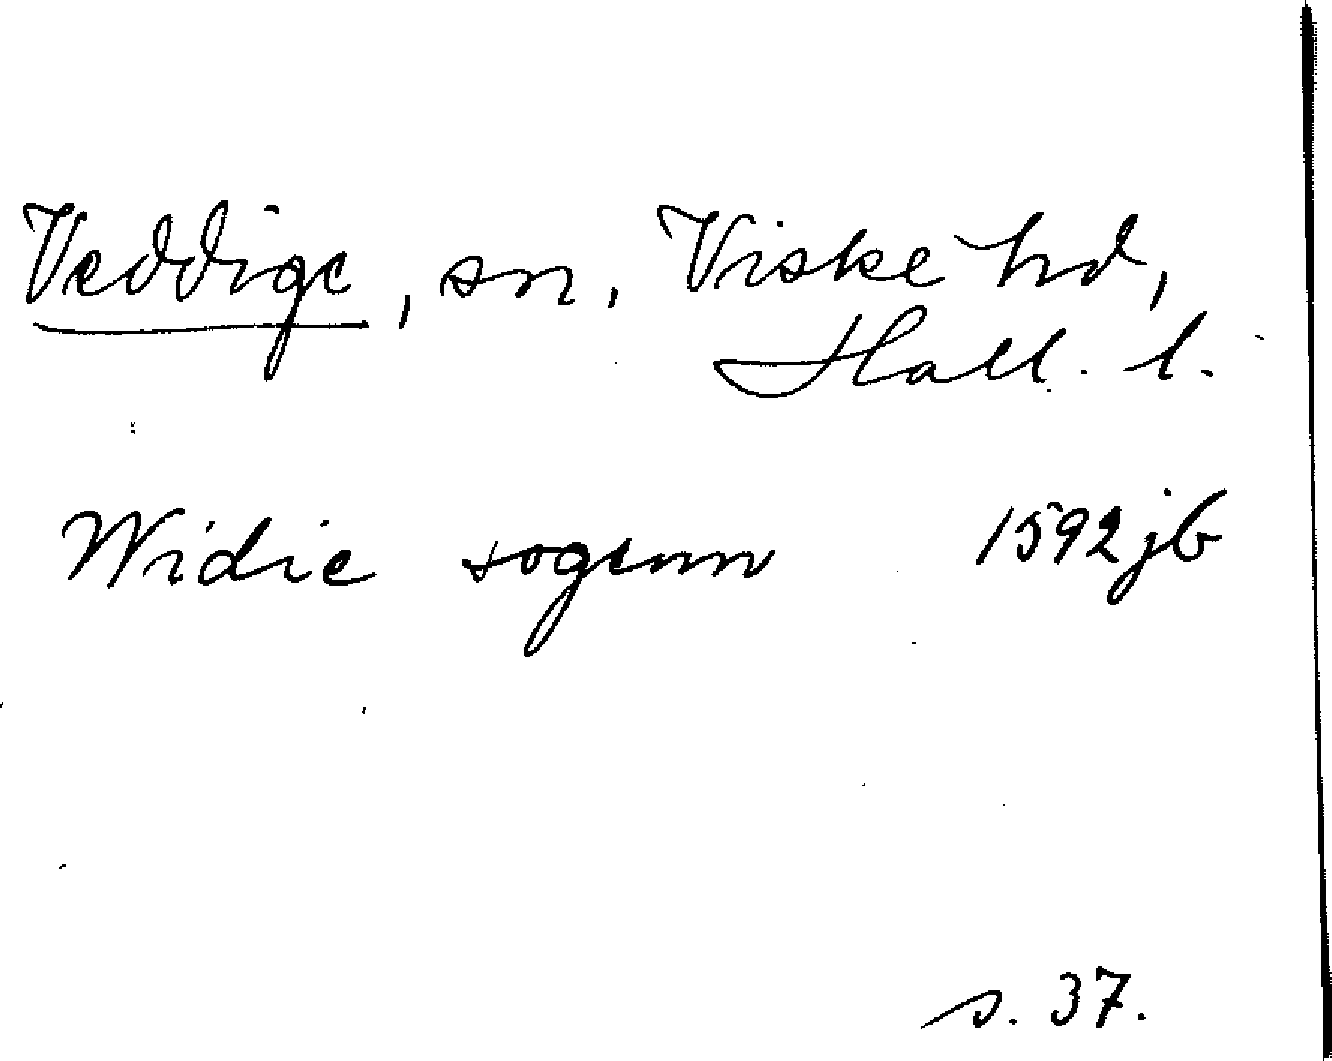 Veddige, sn, Viske hd,
Hall. l.
Widie sogenn 1592 jb
s. 37.